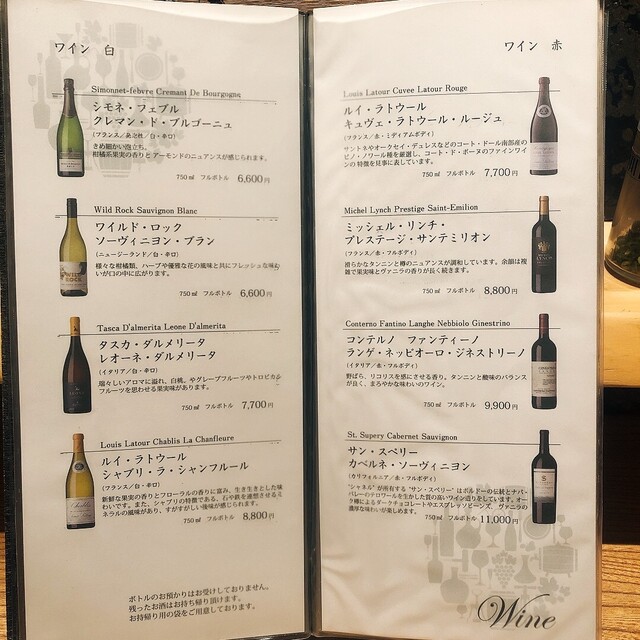 ワイン 白
Simonnet-febvre Cremant De Bourgogne
シモネ・フェブル
クレマン・ド・ブルゴーニュ
(フランス/発泡性/白・辛口)
きめ細かい泡立ち。
柑橘系果実の香りとアーモンドのニュアンスが感じられます。
750㎖ フルボトル 6,600円
Wild Rock Sauvignon Blanc
ワイルド・ロック
ソーヴィニヨン・ブラン
(ニュージーランド/白・辛口)
様々な柑橘類、ハーブや優雅な花の風味と共にフレッシュな味わ
いが口の中に広がります。
750㎖ フルボトル 6,600円
Tasca D'almerita Leone D'almerita
タスカ・ダルメリータ
レオーネ・ダルメリータ
(イタリア/白・辛口)
瑞々しいアロマに溢れ、白桃、やグレープフルーツやトロピカル
フルーツを思わせる果実味があります。
750㎖ フルボトル 7,700円
Louis Latour Chablis La Chanfleure
ルイ・ラトウール
シャブリ・ラ・シャンフルール
(フランス/白・辛口)
新鮮な果実の香りとフローラルの香りに富み、生き生きとした味
わいです。また、シャブリの特徴である、石や鉄を連想させるミ
ネラルの風味があり、すがすがしい後味が感じられます。
750㎖ フルボトル 8,800円
ボトルのお預かりはお受けしておりません。
残ったお酒はお持ち帰り頂けます。
お持帰り用の袋をご用意しております。
ワイン 赤
Louis Latour Cuvee Latour Rouge
ルイ・ラトウール
キュヴェ・ラトウール・ルージュ
(フランス/赤・ミディアムボディ)
サントネイやオークセイ・デュレスなどのコート・ドール南部産の
ピノ・ノワール種を厳選し、コート・ド・ボーヌのファインワイン
の特徴を見事に表しています。
750㎖ フルボトル 7,700円
Michel Lynch Prestige Saint-Emilion
ミッシェル・リンチ・
プレステージ・サンテミリオン
(フランス/赤・フルボディ)
滑らかなタンニンと樽のニュアンスが調和しています。余韻は複
雑で果実味とヴァニラの香りが長く続きます。
750㎖ フルボトル 8,800円
Conterno Fantino Langhe Nebbiolo Ginestrino
コンテルノ ファンティーノ
ランゲ・ネッビオーロ・ジネストリーノ
(イタリア/赤・フルボディ)
野ばら、リコリスを感じさせる香り。タンニンと酸味のバランス
が良く、まろやかな味わいのワイン。
750㎖ フルボトル 9,900円
St. Supery Cabernet Sauvignon
サン・スペリー
カベルネ・ソーヴィニヨン
(カリフォルニア/赤・フルボディ)
"シャネル"が所有する"サン・スペリー"はボルドーの伝統とナパ・
バレーのテロワールを生かした質の高いワイン造りをしています。オー
ク樽によるダークチョコレートやエスプレッソビーンズ、ヴァニラの
濃厚な味わいが楽しめます。
750㎖ フルボトル 11,000円
Wine